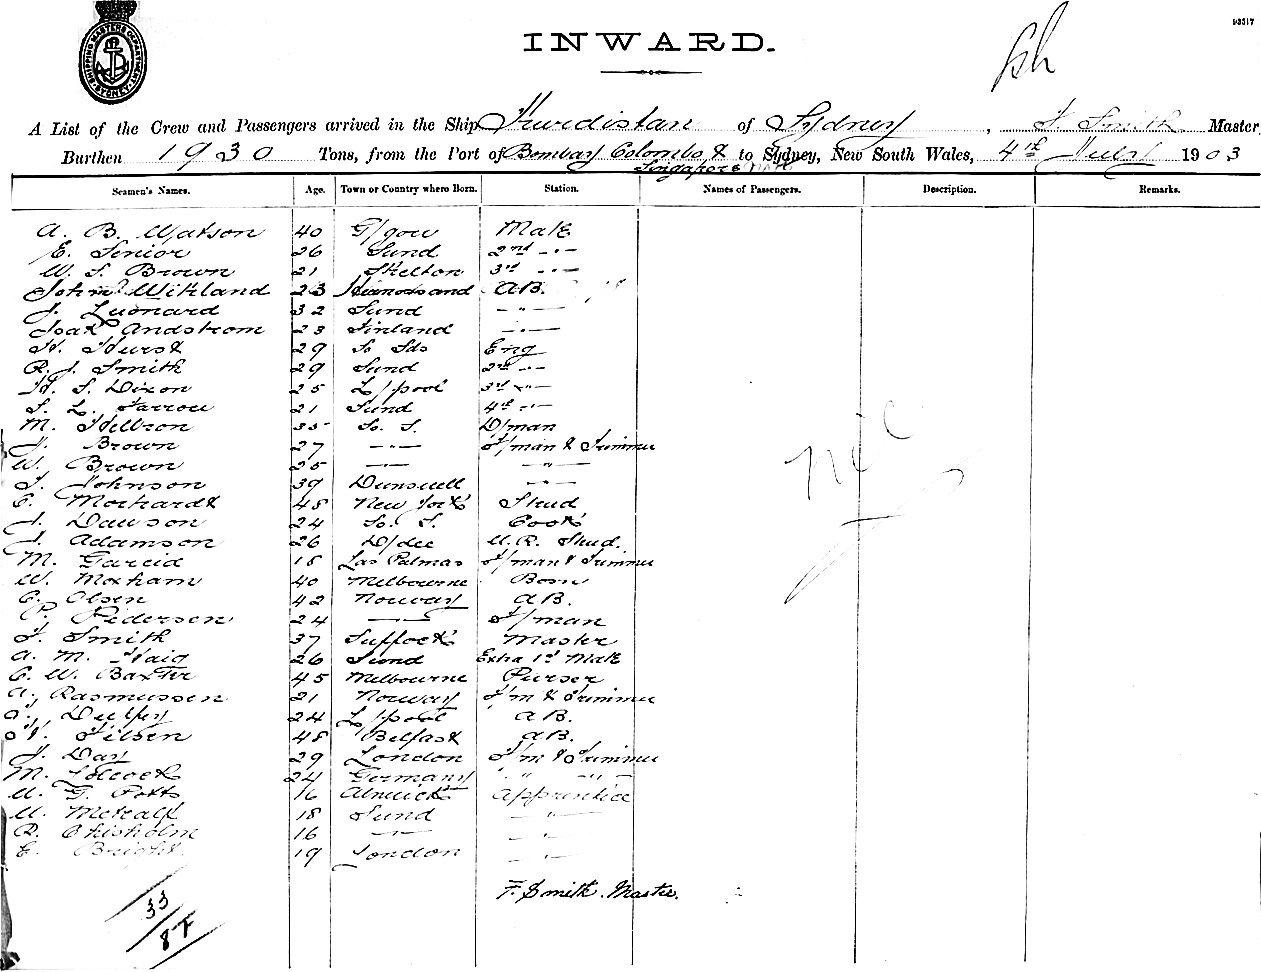 SHIPPING MASTERS DEPARTMENT SYDNEY
93317
INWARD.
A List of the Crew and Passengers arrived in the Ship Kurdistan of Sydney, F. Smith Master
Burthen 1930 Tons, from the Port of Bombay Colombo & to Sydney, New South Wales, 4th July 1903
Singapore
Seamen's Names. Age. Town or Country where Born. Station. Names of Passengers. Description. Remarks.
A. B. Watson 40 G/gow Mate
E. Senior 26 Sund 2nd -"-
W. S. Brown 21 Skelton 3rd -"-
John Wikland 23 AB.
J. Leonard 32 Sund -"-
Andstrom 23 Finland -"-
H. Hurst 29 So Sds Eng
R. J. Smith 29 Sund 2nd -"-
H. S. Dixon 25 L/pool 3rd -"-
S. L. Farrow 21 Sund 4th -"-
M. Hilbron 35 So. S. D/man
J. Brown 27 -"- F/man & Trimmer
W. Brown 25 -"- -"-
J. Johnson 39 -"-
C. 48 New York Stud
J. Dawson 24 So. S. Cook
J. Adamson 26 D/dee M. R. Stud.
M. Garcia 18 Las Palmas F/man & Trimmer
W. Moxham 40 Melbourne Bosn
C. Olsen 42 Norway AB.
P. Pedersen 24 -"- F/man
F. Smith 37 Suffock Master
A. M. Haig 26 Sund Extra 1st Mate
C. W. Baxter 45 Melbourne Purser
A. Rasmussen 21 Norway F/m & Trimmer
24 L/pool AB.
48 Belfast AB.
J. Day 29 London F/m & Trimmer
M. 24 Germany " -"-
G. Potts 16 Alnwick Apprentice
Metcalf 18 Sund -"-
R. Chisholm 16 -"- -"-
E. Bright 19 London -"-
F. Smith. Master.
33
87